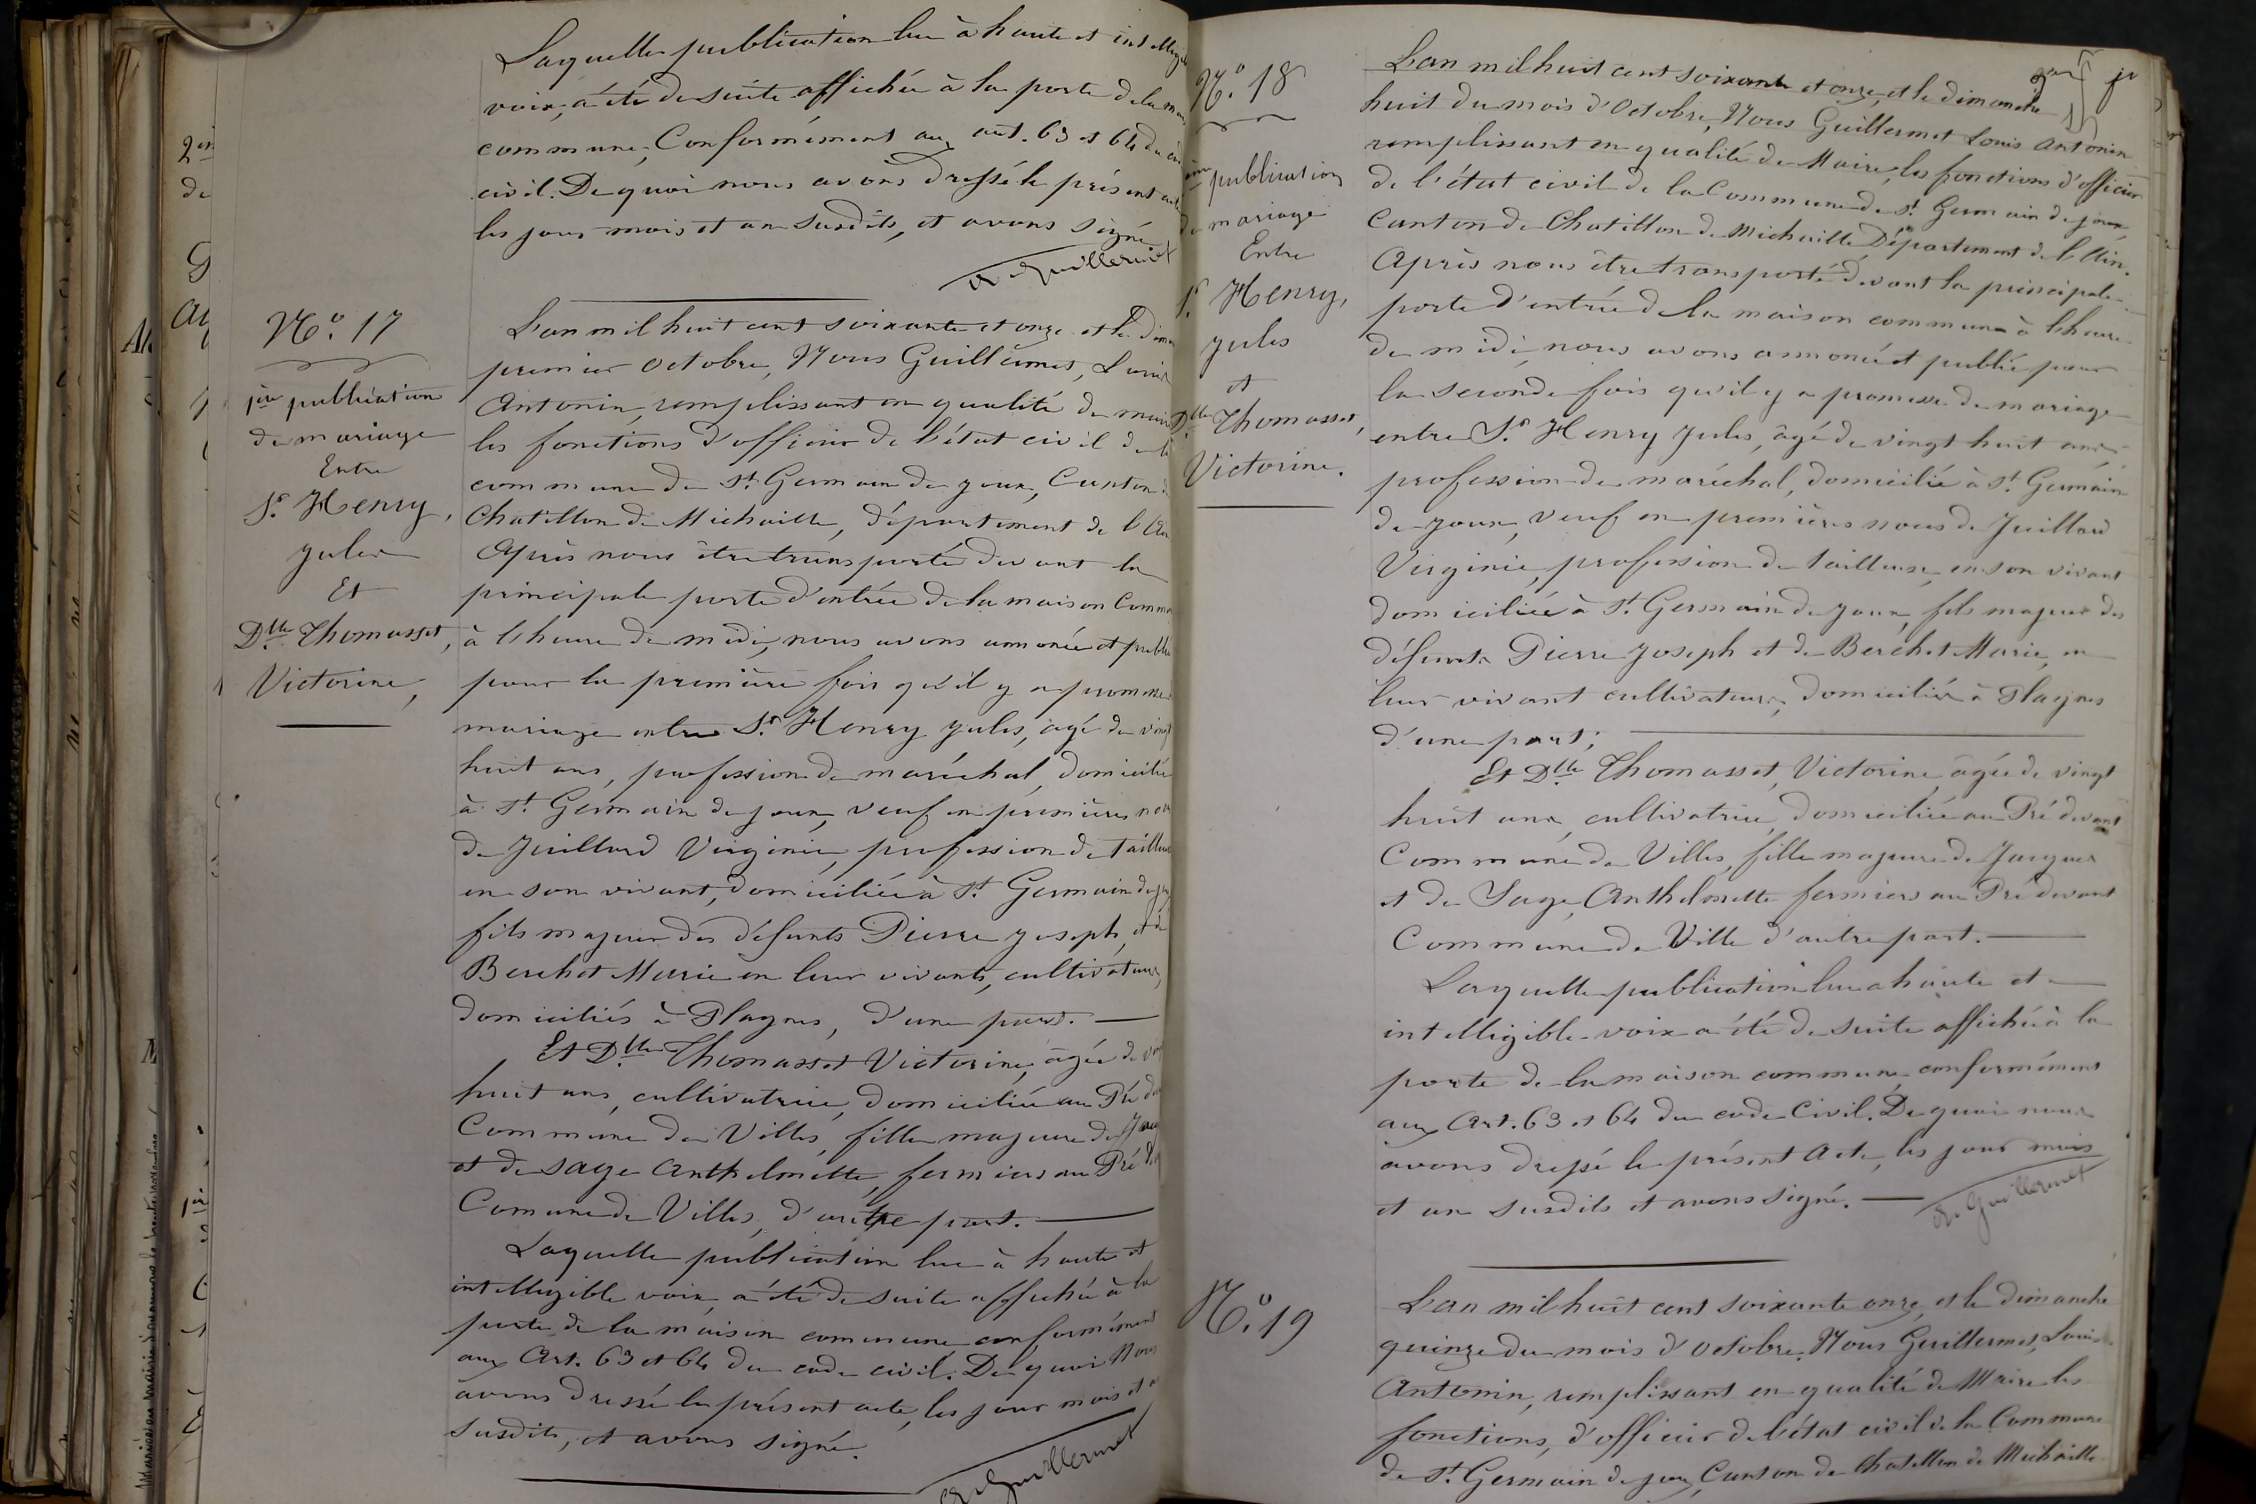 Laquelle publication lue à haute et intelligi
voix, a été de suite affichée à la porte de la mais
commune, Conformément aux art. 63 et 64 du cod
civil. De quoi nous avons dressé le présent acte
les jour mois et an susdits, et avons signé.
Guillermet
N.º 17
1ère publication
de mariage
Entre
Sr. Henry,
Jules
Et
Dlle Thomasset,
Victorine,
L'an mil huit cent soixante et onze et le diman
premier octobre, Nous Guillermet, Louis
Antonin, remplissant en qualité de maire
les fonctions d'officier de l'état civil de la
commune de St. Germain de joux, Canton de
Chatillon de Michaille, département de l'Ain
Après nous être transporté devant la
principale porte d'entrée de la maison Commu
à l'heure de midi, nous avons annoncé et publié
pour la première fois qu'il y a promesse
mariage entre Sr. Henry Jules, agé de vingt
huit ans, profession de maréchal, domicilié
à St. Germain de joux, veuf en premières noc
de Juillard Virginie, profession de Tailleus
en son vivant, domiciliée à St. Germain de jou
fils majeur des défunts Pierre Joseph, et de
Berchet Marie en leur vivants, cultivateurs,
domiciliés à Plagnes, d'une part.
Et Dlle Thomasset Victorine, âgée de vingt
huit ans, cultivatrice, domiciliée au Pré dev
Commune de Villes, fille majeure de Jacq
et de Sage Anthelmette, fermiers au Pré dev
Comune de Villes, d'autre part.
Laquelle publication lue à haute et
intelligible voix, a été de suite affichée à la
porte de la maison commune conformément
aux Art. 63 et 64 du code civil. De quoi Nous
avons dressé le présent acte, les jour mois et an
susdits, et avons signé.
Guillermet
N.º 18
ème publication
de mariage
Entre
Sr. Henry,
Jules
et
Dlle Thomasset,
Victorine.
L'an mil huit cent soixante et onze, et le dimanche
huit du mois d'Octobre, Nous Guillermet Louis Antonin
remplissant en qualité de Maire, les fonctions d'officier
de l'état civil de la Commune de St. Germain de joux,
Canton de Chatillon de Michaille, Département de l'Ain.
Après nous être transporté devant la principale
porte d'entrée de la maison commune à l'heure
de midi, nous avons annoncé et publié pour
la seconde fois qu'il y a promesse de mariage
entre Sr. Henry Jules, âgé de vingt huit ans
profession de maréchal, domicilié à St. Germain
de joux, veuf en premières noces de Juillard
Virginie, profession de tailleuse, en son vivant
domiciliée à St. Germain de joux, fils majeur des
défunts Pierre Joseph et de Berchet Marie, en
leur vivant cultivateurs, domiciliés à Plagnes
d'une part;
Et Dlle Thomasset, Victorine, âgée de vingt
huit ans, cultivatrice, domiciliée au Pré devant
Commune de Villes, fille majeure de Jacques
et de Sage, Anthelmette fermiers au Pré devant
Commune de Ville d'autre part.
Laquelle publication lue a haute et
intelligible voix a été de suite affichée à la
porte de la maison commune conformément
aux Art. 63 et 64 du code Civil. De quoi nous
avons dressé le présent Acte, les jour mois
et an susdits et avons signé.
Guillermet
N.º 19
L'an mil huit cent soixante onze, et le dimanche
quinze du mois d'octobre, Nous Guillermet, Louis
Antonin, remplissant en qualité de Maire les
fonctions, d'officier de l'état civil de la Commune
de St. Germain de joux, Canton de Chatillon de Michaille